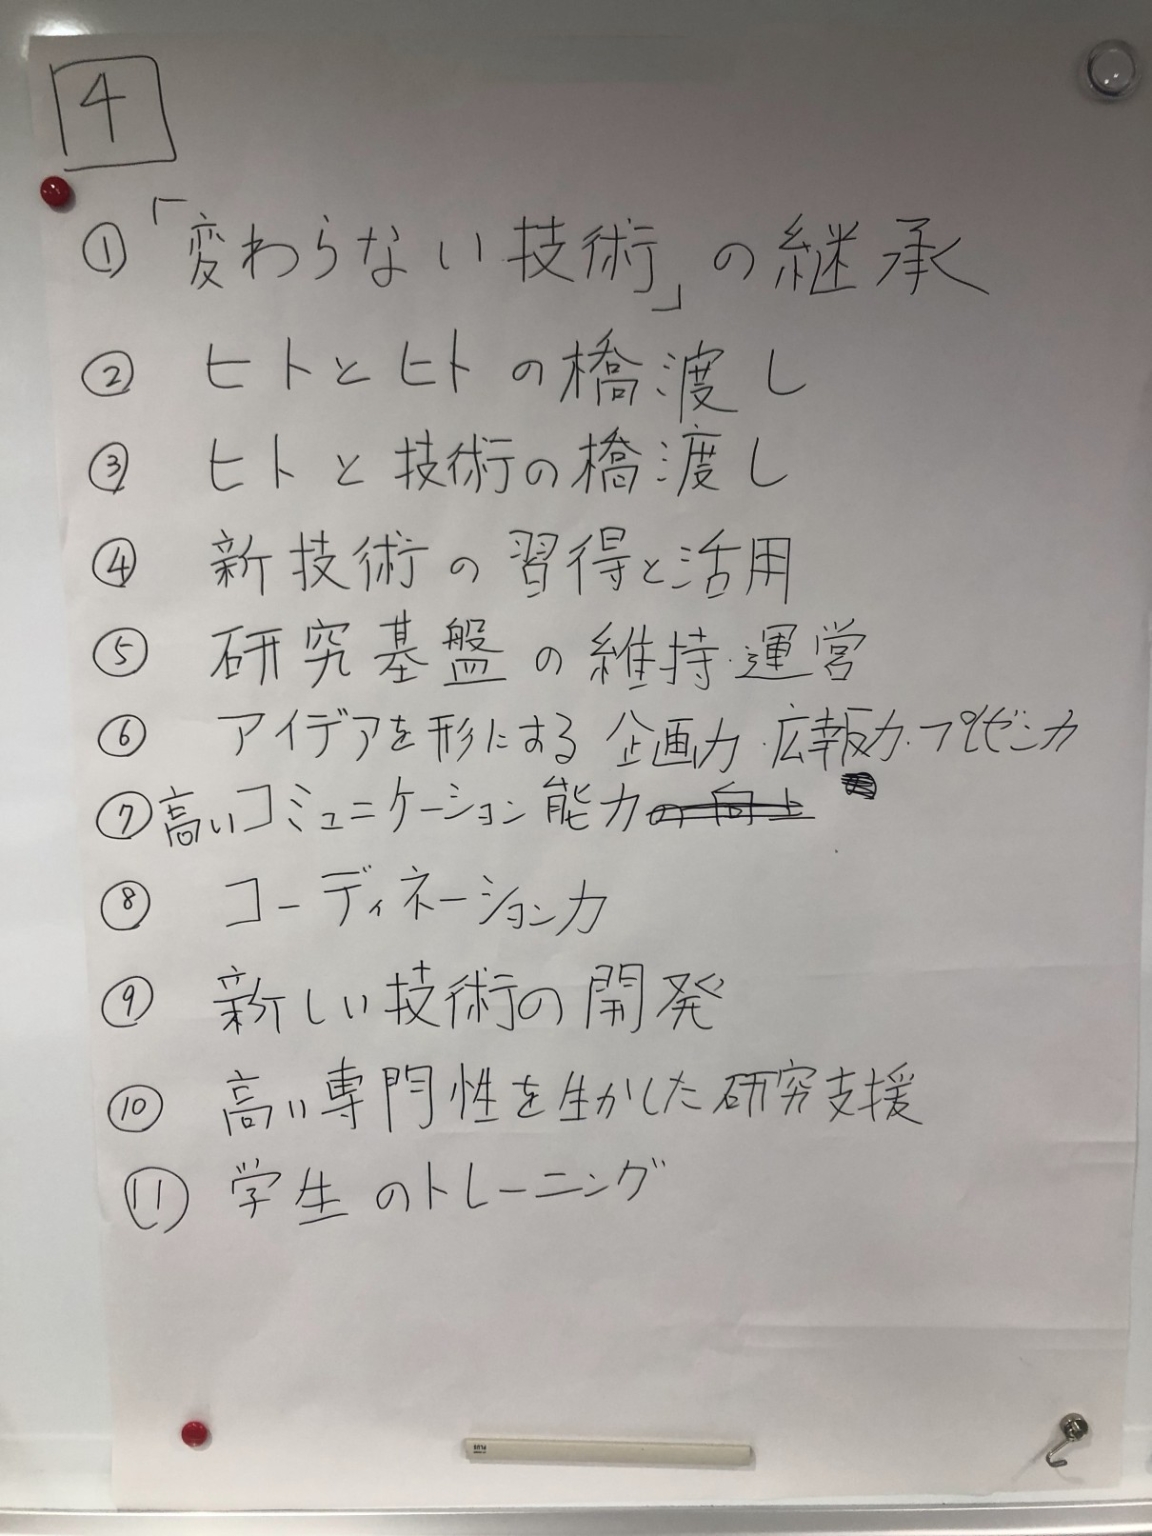 4
① 「変わらない技術」の継承
② ヒトとヒトの橋渡し
③ ヒトと技術の橋渡し
④ 新技術の習得と活用
⑤ 研究基盤の維持・運営
⑥ アイデアを形にする企画力・広報力・プレゼン力
⑦ 高いコミュニケーション能力の向上
⑧ コーディネーション力
⑨ 新しい技術の開発
⑩ 高い専門性を生かした研究支援
⑪ 学生のトレーニング